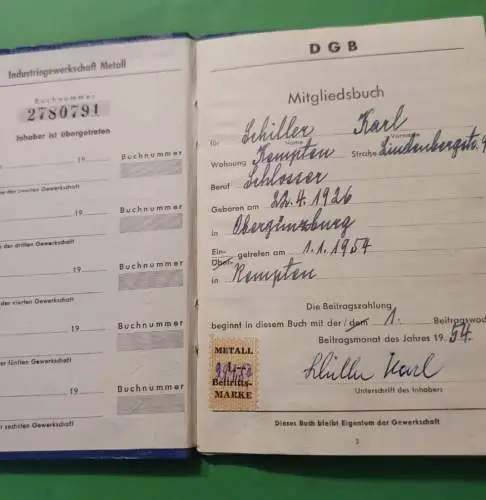 Industriegewerkschaft Metall
Buchnummer
2780791
Inhaber ist übergetreten
19 Buchnummer
der zweiten Gewerkschaft
19 Buchnummer
der dritten Gewerkschaft
19 Buchnummer
der vierten Gewerkschaft
19 Buchnummer
der fünften Gewerkschaft
19 Buchnummer
der sechsten Gewerkschaft
DGB
Mitgliedsbuch
für Schiller Karl
Name Vorname
Wohnung Kempten Straße Lindenbergstr.
Beruf Schlosser
Geboren am 22.4.1926
in Obergünzburg
Ein-
Über- getreten am 1.1.1954
in Kempten
Die Beitragszahlung
beginnt in diesem Buch mit der / dem 1. Beitragswoc
Beitragsmonat des Jahres 19 54.
METALL
Beitritts-
MARKE
Schiller Karl
Unterschrift des Inhabers
Dieses Buch bleibt Eigentum der Gewerkschaft
3